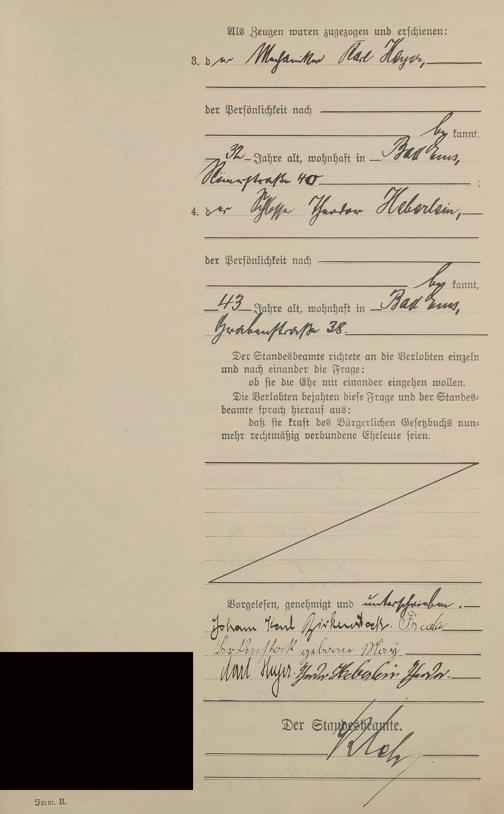 Als Zeugen waren zugezogen und erschienen:
3. der Mechaniker Karl
der Persönlichkeit nach
be kannt,
32 Jahre alt, wohnhaft in Bad Ems,
Römerstraße 40 ;
4. der Schlosser Theodor Heberlein,
der Persönlichkeit nach
be kannt,
43 Jahre alt, wohnhaft in Bad Ems,
Grabenstraße 38.
Der Standesbeamte richtete an die Verlobten einzeln
und nach einander die Frage:
ob sie die Ehe mit einander eingehen wollen.
Die Verlobten bejahten diese Frage und der Standes-
beamte sprach hierauf aus:
daß sie kraft des Bürgerlichen Gesetzbuchs nun-
mehr rechtmäßig verbundene Eheleute seien.
Vorgelesen, genehmigt und unterschrieben.
Johann Karl Birkenstock. Frieda
Birkenstock geborene May.
Karl Heberlein Theodor.
Der Standesbeamte.
Form. B.